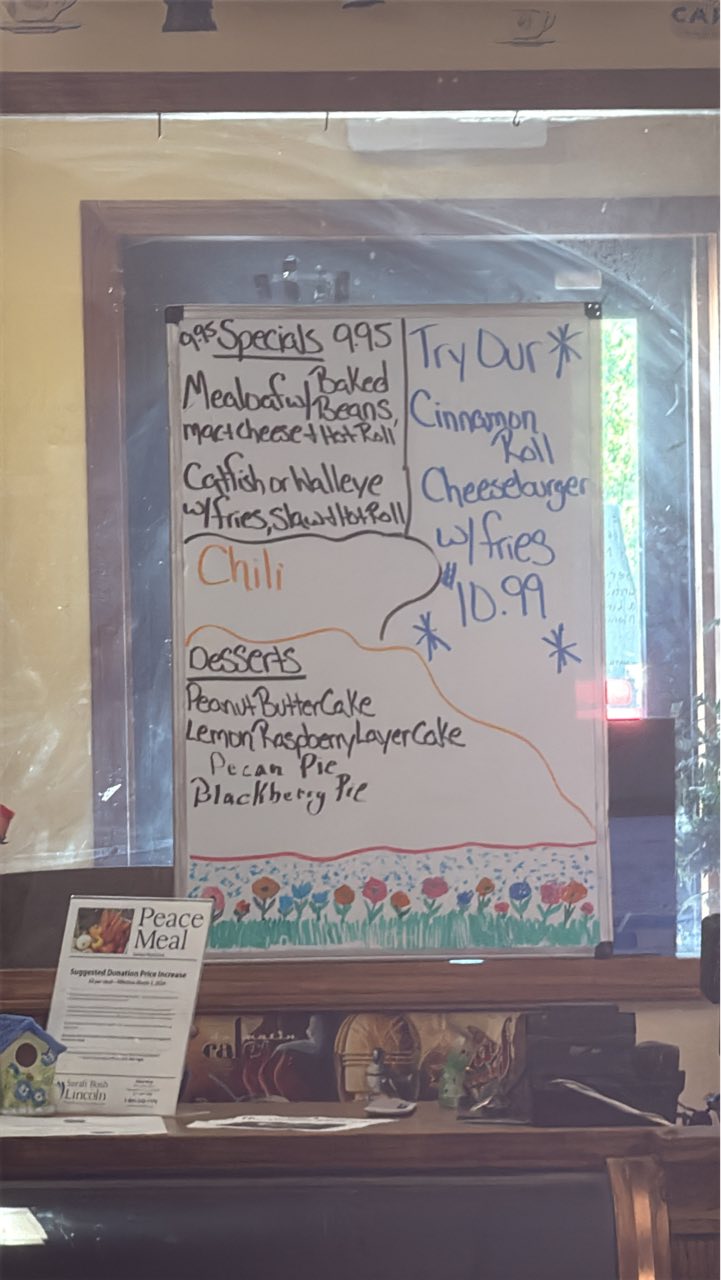 CAF
9.95 Specials 9.95
Mealoaf w/ Baked
Beans,
mac+cheese + Hot Roll
Catfish or Walleye
w/fries, Slaw + Hot Roll
Chili
Desserts
Peanut Butter Cake
Lemon Raspberry Layer Cake
Pecan Pie
Blackberry Pie
Try Our *
Cinnamon
Roll
Cheeseburger
w/fries
$10.99
* *
Peace
Meal
Suggested Donation Price Increase
Sarah Bush
Lincoln
cafe